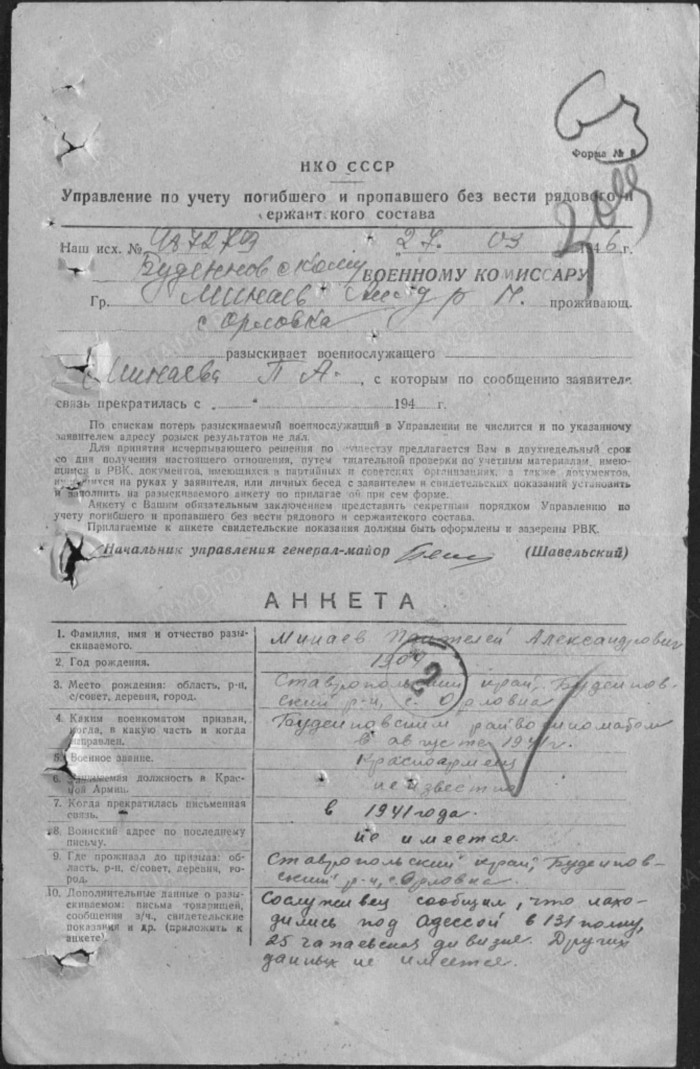 Форма № 8
НКО СССР
Управление по учету погибшего и пропавшего без вести рядового и
сержант кого состава
Наш исх. № 987279 „27. 03 1946 г.
Буденновскому ВОЕННОМУ КОМИССАРУ
Гр. Минаев р проживающ.
с Орловка
разыскивает военнослужащего
Минаева П А. , с которым по сообщению заявителя
связь прекратилась с „ " 194 г.
По спискам потерь разыскиваемый военнослужащий в Управлении не числится и по указанному
заявителем адресу розыск результатов не дал.
Для принятия исчерпывающего решения по существу предлагается Вам в двухнедельный срок
со дня получения настоящего отношения, путем тщательной проверки по учетным материалам, имею-
щимся в РВК, документов, имеющихся в партийных и советских организациях, а также документов,
имеющихся на руках у заявителя, или личных бесед с заявителем и свидетельских показаний установить
и заполнить на разыскиваемого анкету по прилагаемой при сем форме.
Анкету с Вашим обязательным заключением представить секретным порядком Управлению по
учету погибшего и пропавшего без вести рядового и сержантского состава.
Прилагаемые к анкете свидетельские показания должны быть оформлены и заверены РВК.
Начальник управления генерал-майор (Шавельский)
АНКЕТА
1. Фамилия, имя и отчество разы-
скиваемого.
Минаев Пантелей Александрович
2. Год рождения.
1909
3. Место рождения: область, р-н,
с/совет, деревня, город.
Ставропольский край, Буденов-
ский р-н, с. Орловка
4. Каким военкоматом призван,
когда, в какую часть и когда
направлен.
Буденовским райвоенкоматом
в августе 1941 г.
5. Военное звание.
Красноармеец
6. Занимаемая должность в Крас-
ной Армии.
неизвестно
7. Когда прекратилась письменная
связь.
в 1941 года.
8. Воинский адрес по последнему
письму.
не имеется.
9. Где проживал до призыва: об-
ласть, р-н, с/совет, деревня, го-
род.
Ставропольский край, Буденов-
ский р-н, с. Орловка
10. Дополнительные данные о разы-
скиваемом: письма товарищей,
сообщения в/ч., свидетельские
показания и др. (приложить к
анкете).
Сослуживец сообщил, что нахо-
дились под Одессой в 131 полку,
25 чапаевская дивизия. Других
данных не имеется.